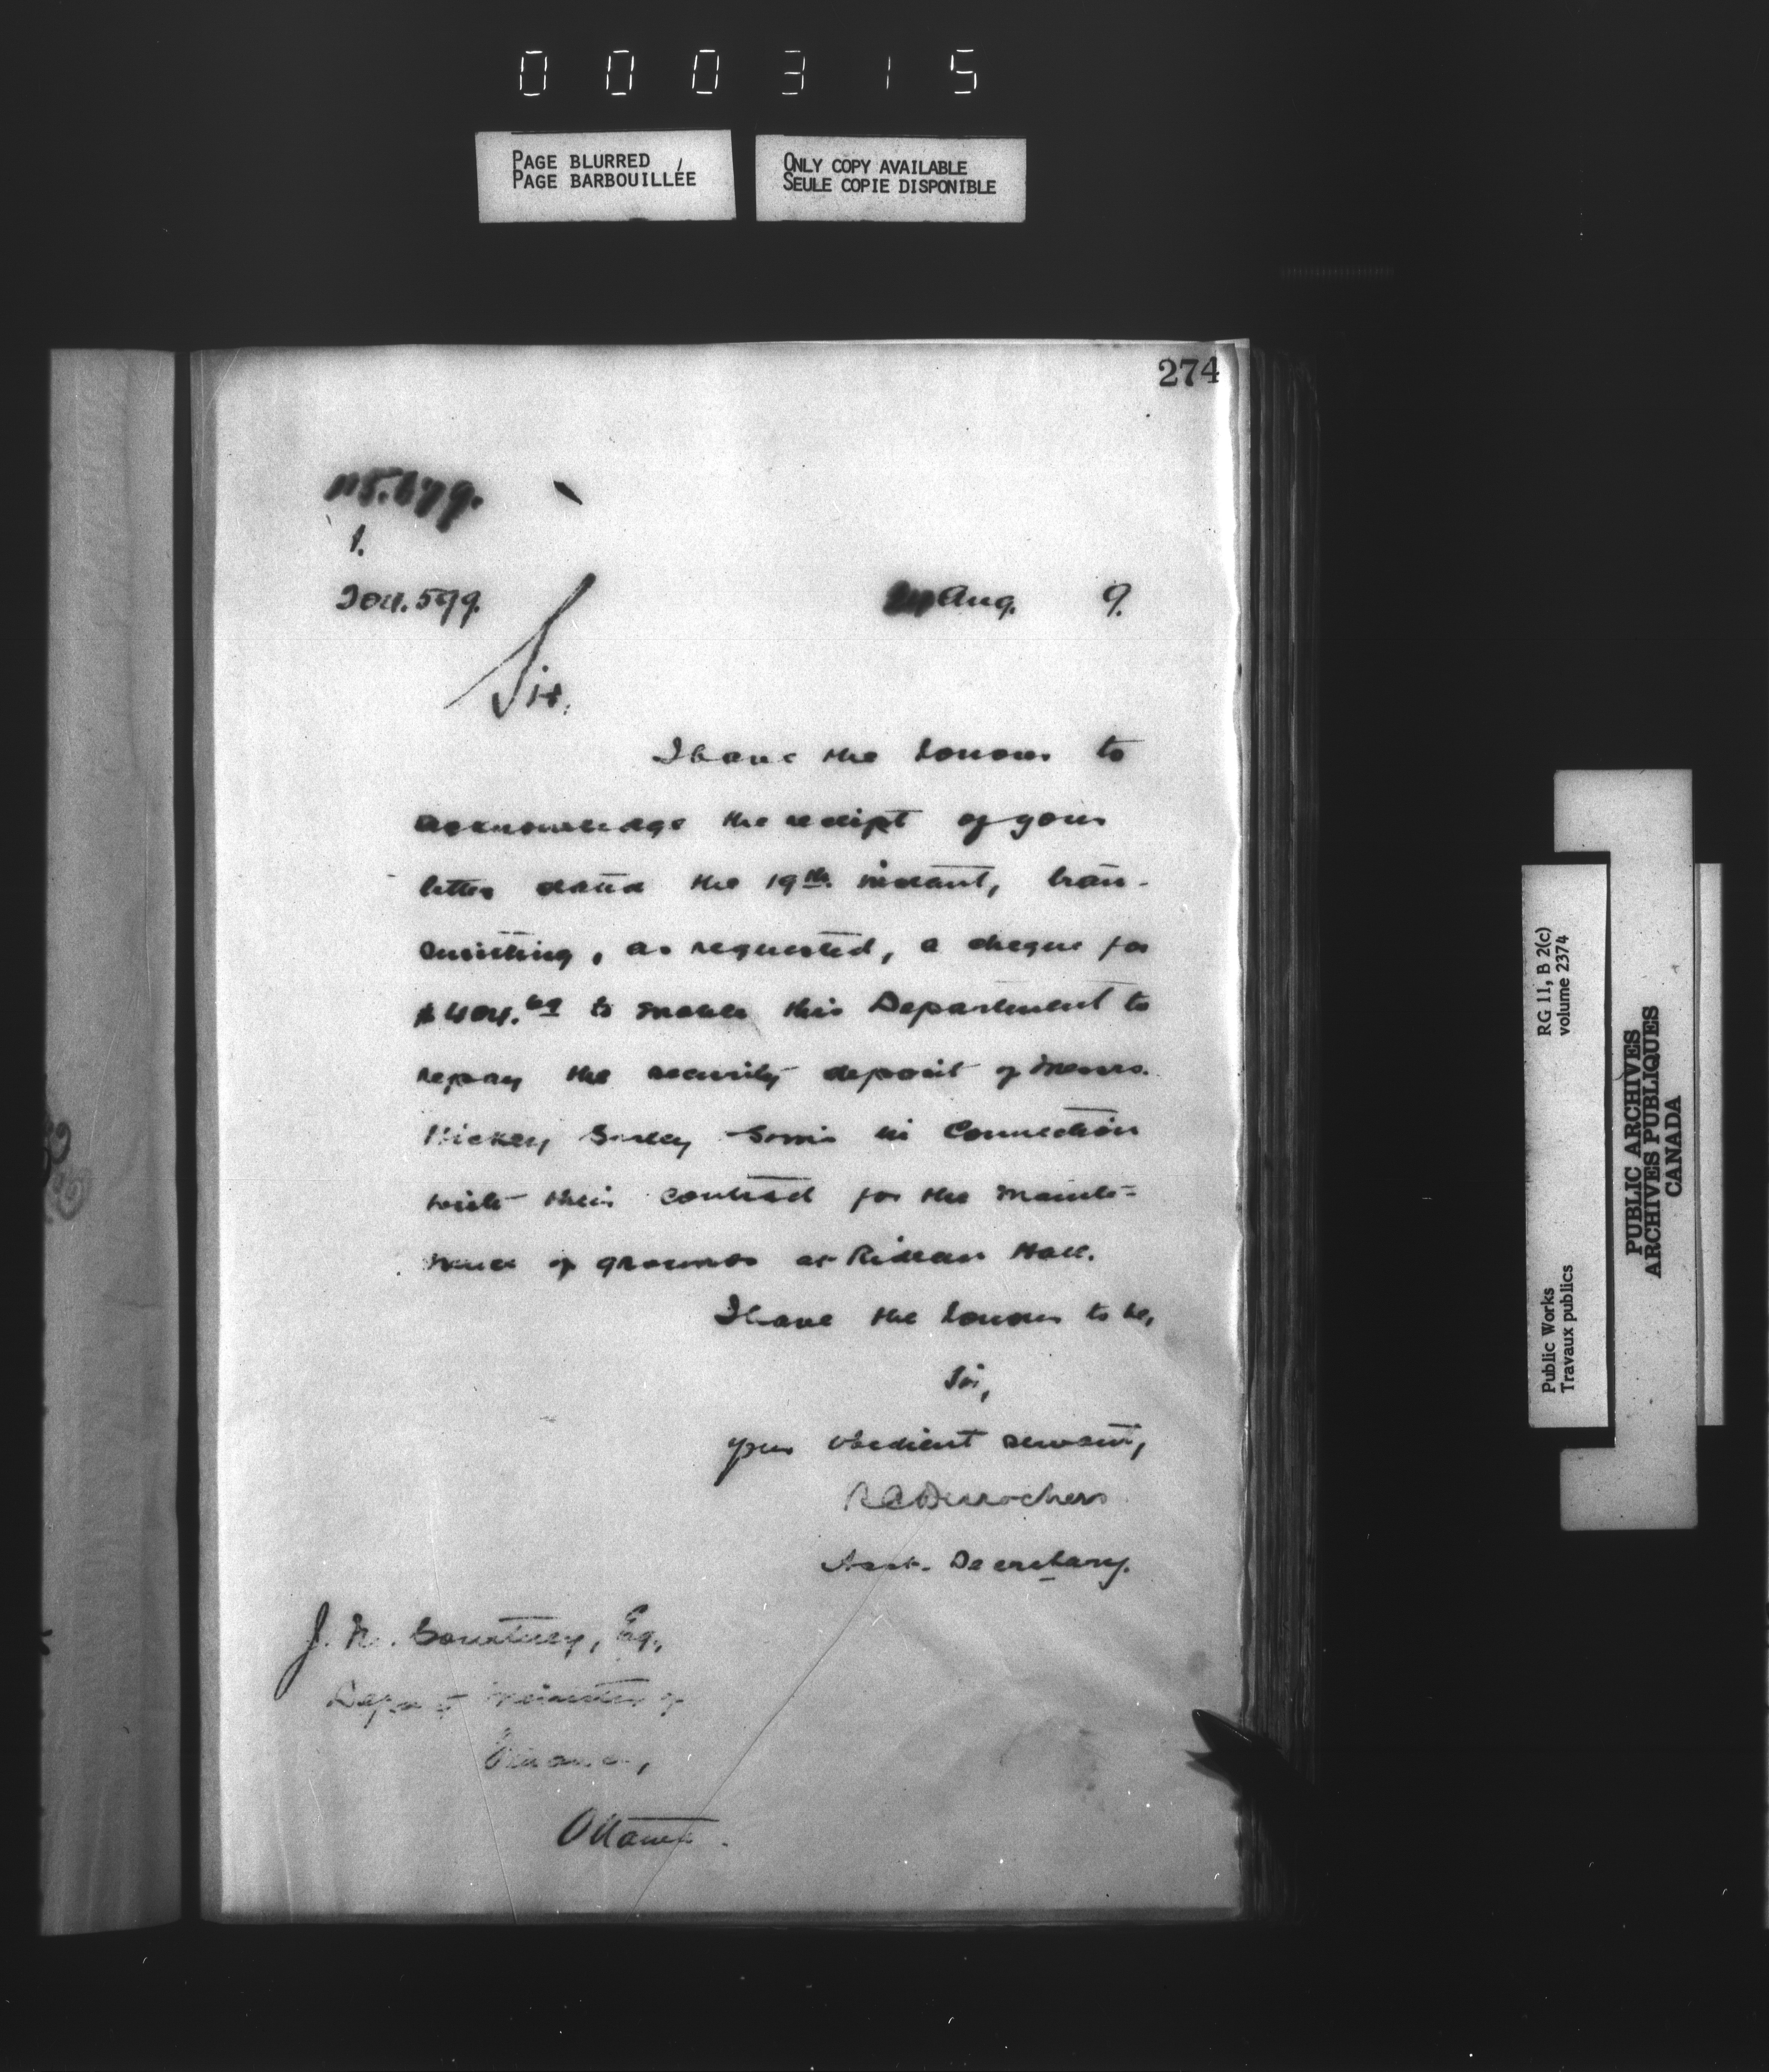 000315
PAGE BLURRED
PAGE BARBOUILLÉE
ONLY COPY AVAILABLE
SEULE COPIE DISPONIBLE
274
1.
204.599.
Aug. 9.
Sir,
I have the honour to
acknowledge the receipt of your
letter dated the 19th instant, tran-
smitting, as requested, a cheque for
to enable this Department to
repay the security deposit of Messrs.
Hickey in connection
with their contract for the mainte-
nance of grounds at Rideau Hall.
I have the honour to be,
Sir,
Your obedient servant,
R C Desrochers
Asst. Secretary.
J. M. Courtney, Esq.,
Deputy Minister of
Finance,
Ottawa.
RG 11, B 2(c)
volume 2374
Public Works
Travaux publics
PUBLIC ARCHIVES
ARCHIVES PUBLIQUES
CANADA